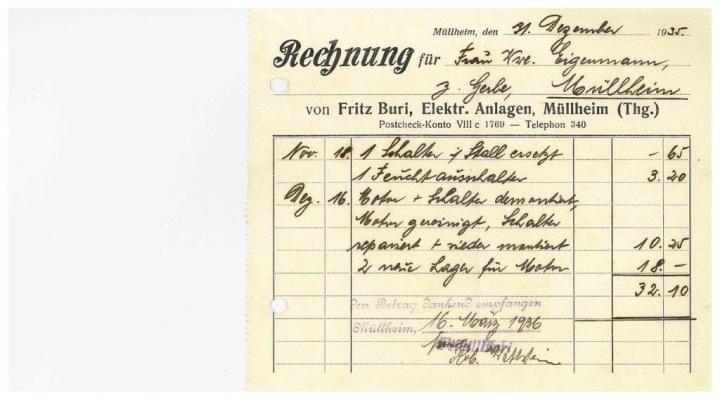 Müllheim, den 31. Dezember 1935.
Rechnung für Frau Wwe. Eigenmann,
z. Gerbe, Müllheim
von Fritz Buri, Elektr. Anlagen, Müllheim (Thg.)
Postcheck-Konto VIII c 1769 — Telephon 340
Nov. 18. 1 Schalter i/Stall ersetzt — 65
1 Feuchtausschalter 3. 20
Dez. 16. Motor + Schalter demontiert,
Motor gereinigt, Schalter
repariert + wieder montiert 10. 25
2 neue Lager für Motor 18. —
32. 10
Den Betrag dankend empfangen
Müllheim, 16. März 1936